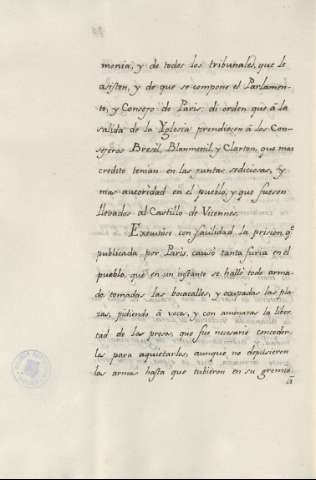 monia, y de todos los tribunales, que le
asisten, y de que se compone el Parlamen-
to, y Consejo de Paris: di orden que â la
salida de la Yglesia prendiesen â los Con-
sejeros Bresil, Blanmenil, y Clarton, que mas
credito tenian en las juntas sediciosas, y
mas autoridad en el pueblo, y que fuesen
llevados al Castillo de Vicennes.
Executóse con facilidad la prision, q.e
publicada por Paris, causò tanta furia en el
pueblo, que en un instante se hallò todo arma-
do tomadas las bocacalles, y ocupadas las pla-
zas, pidiendo â voces, y con amenazas la liber-
tad de los presos, que fue necesario conceder-
les para aquietarles, aunque no depusieron
las armas hasta que tubieron en su gremio
â